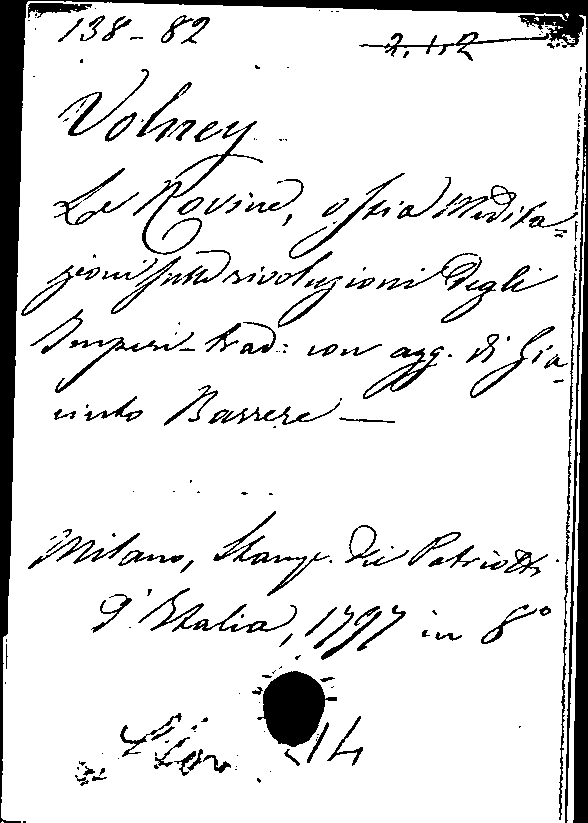 138-82 2.1.2
Volney
Le Rovine, ossia Medita=
zioni sulle rivoluzioni degli
Imperi - trad: con agg. di Gia=
cinto Barrere —
Milano, Stamp. dei Patriotti
d'Italia, 1797 in 8°
14